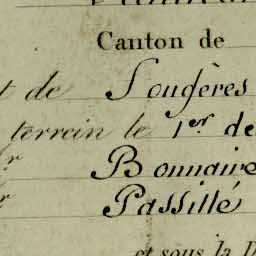 Canton de
t de Sougères
terrein le 1er de
r Bonnaire
r Passillé
et sous la D